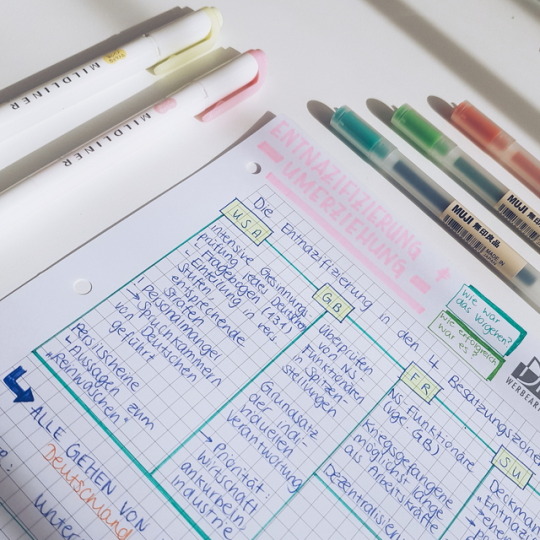 MILDLINER
MILDLINER
MUJI 無印良品
MADE IN
MUJI 無印
ENTNAZIFIZIERUNG +
UMERZIEHUNG
Die Entnazifizierung in den 4 Besatzungszone
Wie war
das Vorgehen?
Wie erfolgreich
war es?
WERBEAR
USA
Intensive Gesinnungs-
prüfung jedes Deutschen
↳ Fragebögen (131)
↳ Einteilung in versch.
Stufen,
entsprechende
Strafen
→ Personalmangel
→ Spruchkammern
von Deutschen
geführt
Persilscheine
↳ Aussagen zum
"Reinwaschen"
GB
Überprüfen
von NS-
Funktionären
in Spitzen-
stellungen
Grundsatz
der indi-
viduellen
Verantwortung
→ Priorität:
Wirtschaft
ankurbeln,
Industrie
FR
NS-Funktionäre
(vgl. GB)
Kriegsgefangene
möglichst lange
als Arbeitskräfte
Dezentralisier
SU
Deckman
ALLE GEHEN VON
Deutschland
unter